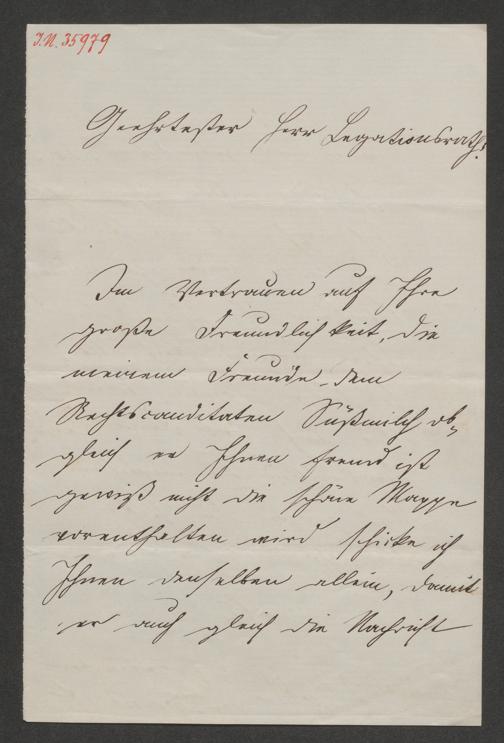 J.N. 35979
Geehrtester Herr Legationsrath!
Im Vertrauen auf Ihre
große Freundlichkeit, die
meinem Freunde dem
Rechtscanditaten Süßmilch ob-
gleich er Ihnen fremd ist
gewiß nicht die schöne Mappe
vorenthalten wird schicke ich
Ihnen denselben allein, damit
er auch gleich die Nachricht